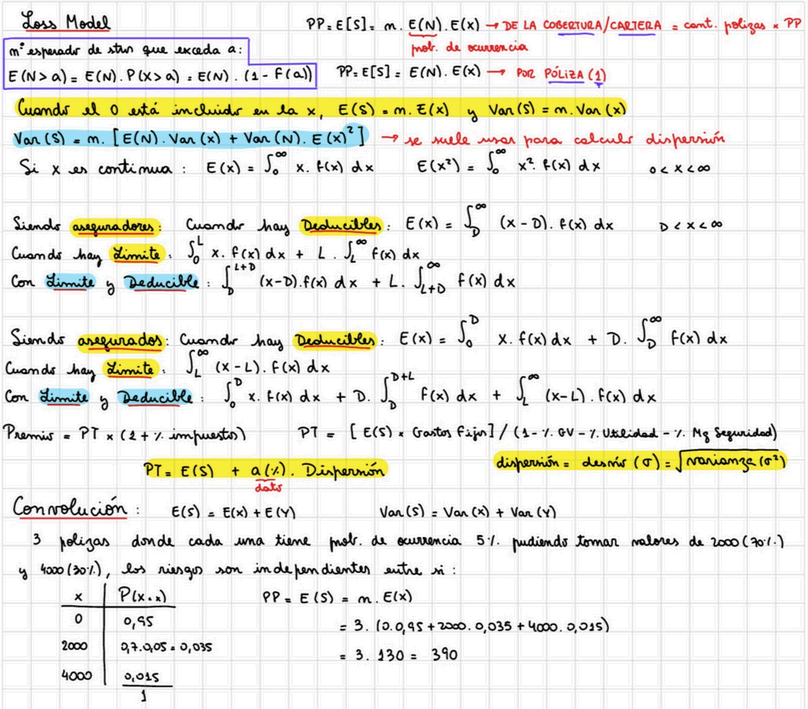 Loss Model
PP = E[S] = m. E(N). E(x) → DE LA COBERTURA/CARTERA = cant. polizas × PP
prob. de ocurrencia
nº esperado de stros que exceda a:
E(N>a) = E(N). P(x>a) = E(N). (1 - F(a))
PP = E[S] = E(N). E(x) → POR PÓLIZA (1)
Cuando el 0 está incluido en la x, E(S) = m. E(x) y Var(S) = m. Var(x)
Var(S) = m. [E(N). Var(x) + Var(N). E(x)²] → se suele usar para calcular dispersión
Si x es continua: E(x) = ∫₀^∞ x. f(x) dx E(x²) = ∫₀^∞ x². f(x) dx 0 < x < ∞
Siendo aseguradores: Cuando hay Deducibles: E(x) = ∫_D^∞ (x - D). f(x) dx D < x < ∞
Cuando hay Limite: ∫₀^L x. f(x) dx + L. ∫_L^∞ f(x) dx
Con Limite y Deducible: ∫_D^{L+D} (x-D). f(x) dx + L. ∫_{L+D}^∞ f(x) dx
Siendo asegurados: Cuando hay Deducibles: E(x) = ∫₀^D x. f(x) dx + D. ∫_D^∞ f(x) dx
Cuando hay Limite: ∫_L^∞ (x-L). f(x) dx
Con Limite y Deducible: ∫₀^D x. f(x) dx + D. ∫_D^{D+L} f(x) dx + ∫_L^∞ (x-L). f(x) dx
Premio = PT × (1 + % impuestos) PT = [E(S) × Gastos Fijos] / (1 - % GV - % Utilidad - % Mg Seguridad)
PT = E(S) + a(%). Dispersión
dato
dispersión = desvío (σ) = √varianza (σ²)
Convolución: E(S) = E(x) + E(Y) Var(S) = Var(x) + Var(Y)
3 polizas donde cada una tiene prob. de ocurrencia 5% pudiendo tomar valores de 2000 (70%)
y 4000 (30%), los riesgos son independientes entre si:
x P(x=x)
0 0,95
2000 0,7.0,05 = 0,035
4000 0,015
1
PP = E(S) = m. E(x)
= 3. (0.0,95 + 2000. 0,035 + 4000. 0,015)
= 3. 130 = 390